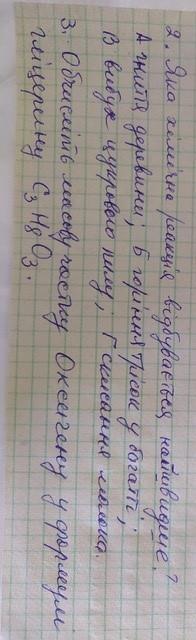 2. Яка хемічна реакція відбувається найшвидше?
А гниття деревини; Б горіння трісок у багатті;
В вибух цукрового пилу; Г скисання молока.
3. Обчисліть масову частку Оксигену у формулі
гліцерину C₃H₈O₃.